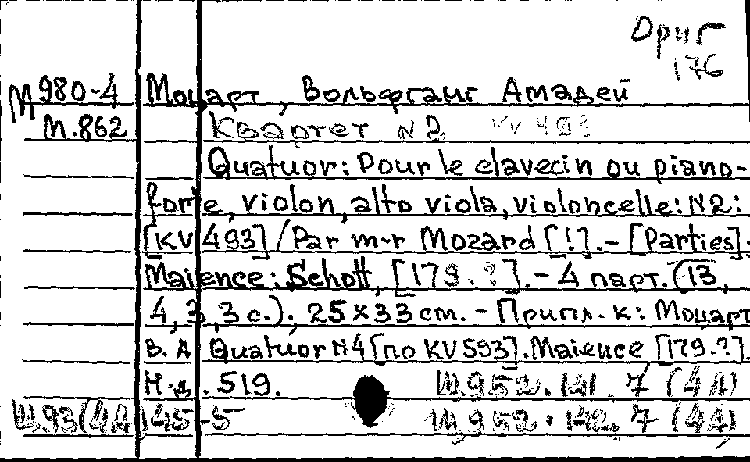 Ориг
176
М 980-4 Моцарт, Вольфганг Амадей
м.862 Квартет N2 KV 493
Quatuor: Pour le clavecin ou piano-
forte, violon, alto viola, violoncelle: N2:
[KV 493] / Par m-r Mozard [!]. - [Parties].
Maience: Schott, [179.?]. - 4 парт. (13,
4, 3, 3 с.). 25x33 cm. - Припл. к: Моцарт
В. А Quatuor N4 [по KV 593]. Maience [179.?].
Н.д. 519. Ш.952.141.7 (4А)
Ш.93(4А)45-5 Ш.952.142.7 (4А)